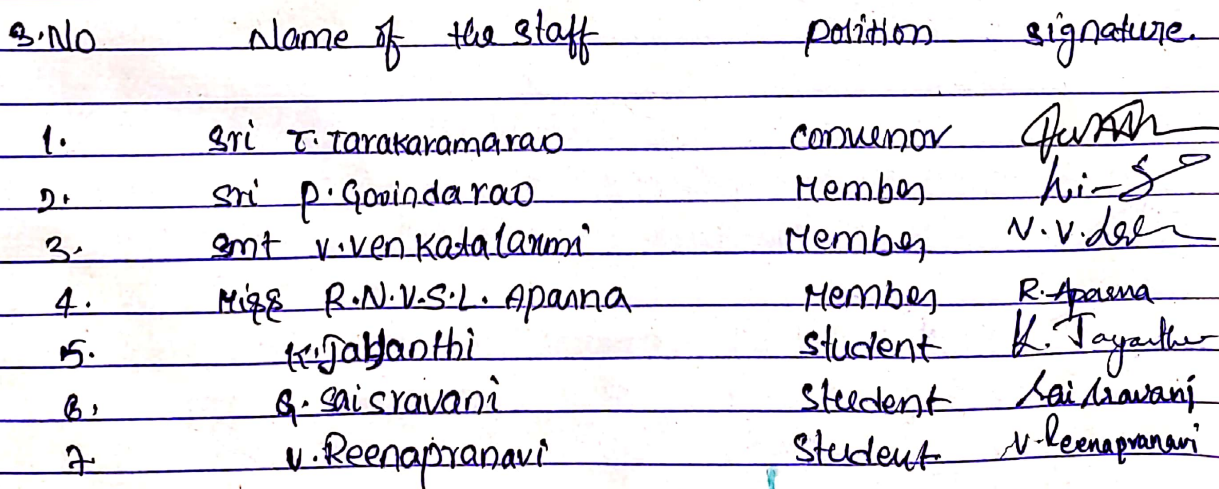 S.No Name of the staff position signature.
1. Sri T. Tarakaramarao convenor
2. Sri P. Govindarao Member
3. Smt V. Venkatalaxmi Member V. V. 
4. Miss R.N.V.S.L. Aparna Member R. Aparna
5. K. Jayanthi Student K. Jayanthi
6. G. Saisravani Student Sai Sravani
7. V. Reenapranavi Student V. Reenapranavi